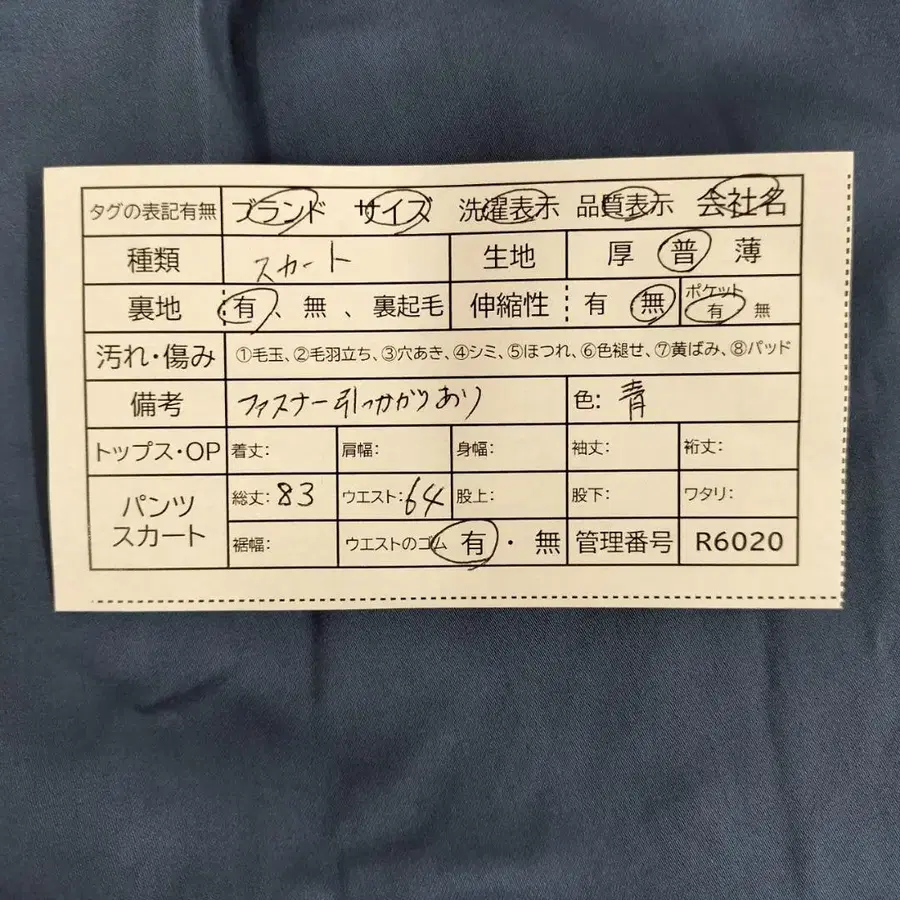 タグの表記有無 ブランド サイズ 洗濯表示 品質表示 会社名
種類 スカート 生地 厚 普 薄
裏地 有、無、裏起毛 伸縮性 有 無 ポケット 有 無
汚れ・傷み ①毛玉、②毛羽立ち、③穴あき、④シミ、⑤ほつれ、⑥色褪せ、⑦黄ばみ、⑧パッド
備考 ファスナー引っかがりあり 色: 青
トップス・OP 着丈: 肩幅: 身幅: 袖丈: 裄丈:
パンツ スカート 総丈: 83 ウエスト: 64 股上: 股下: ワタリ:
裾幅: ウエストのゴム 有・無 管理番号 R6020